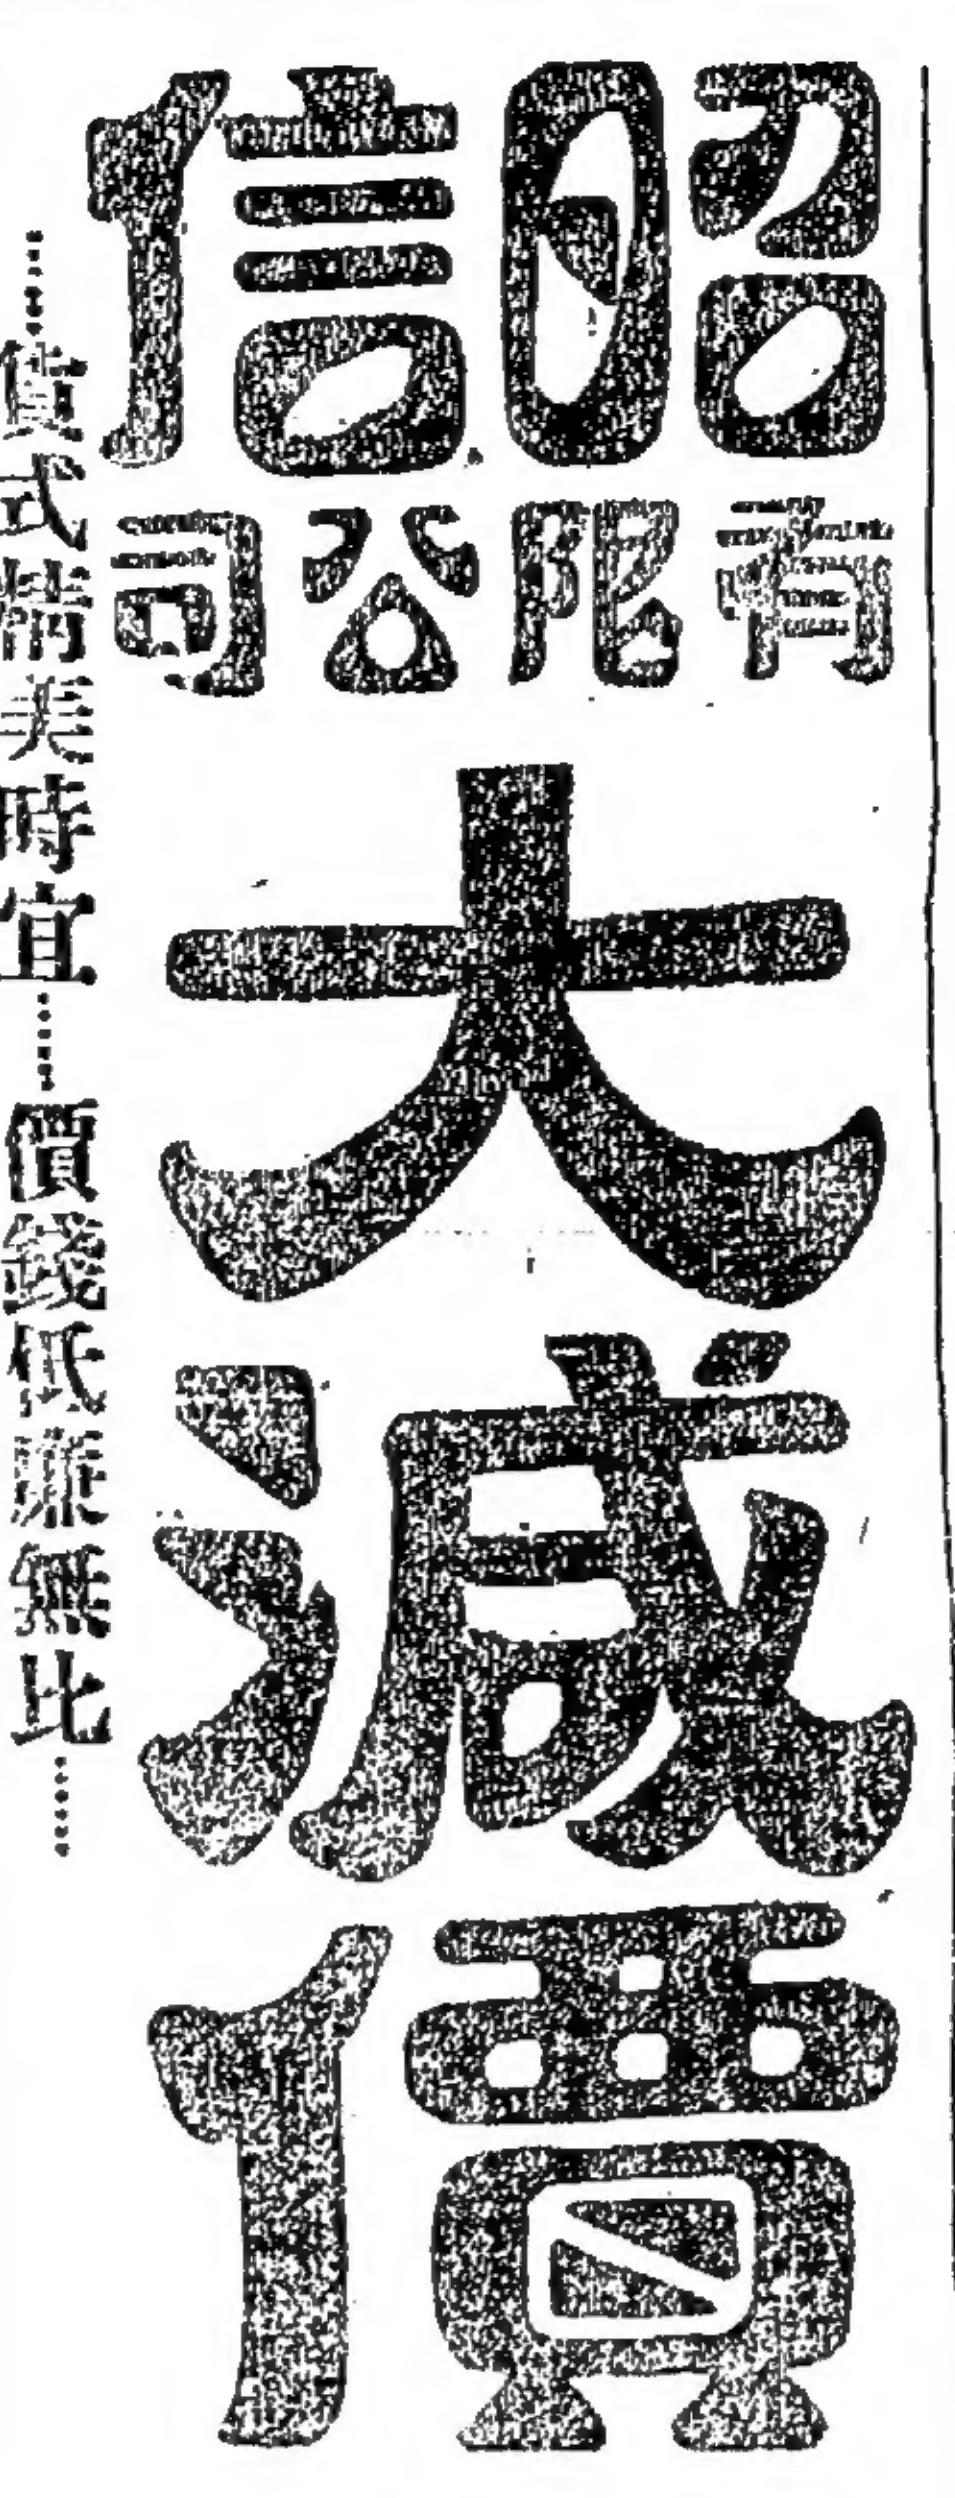 昭信
有限公司
大減價
……貨式精美時宜……價錢低廉無比……